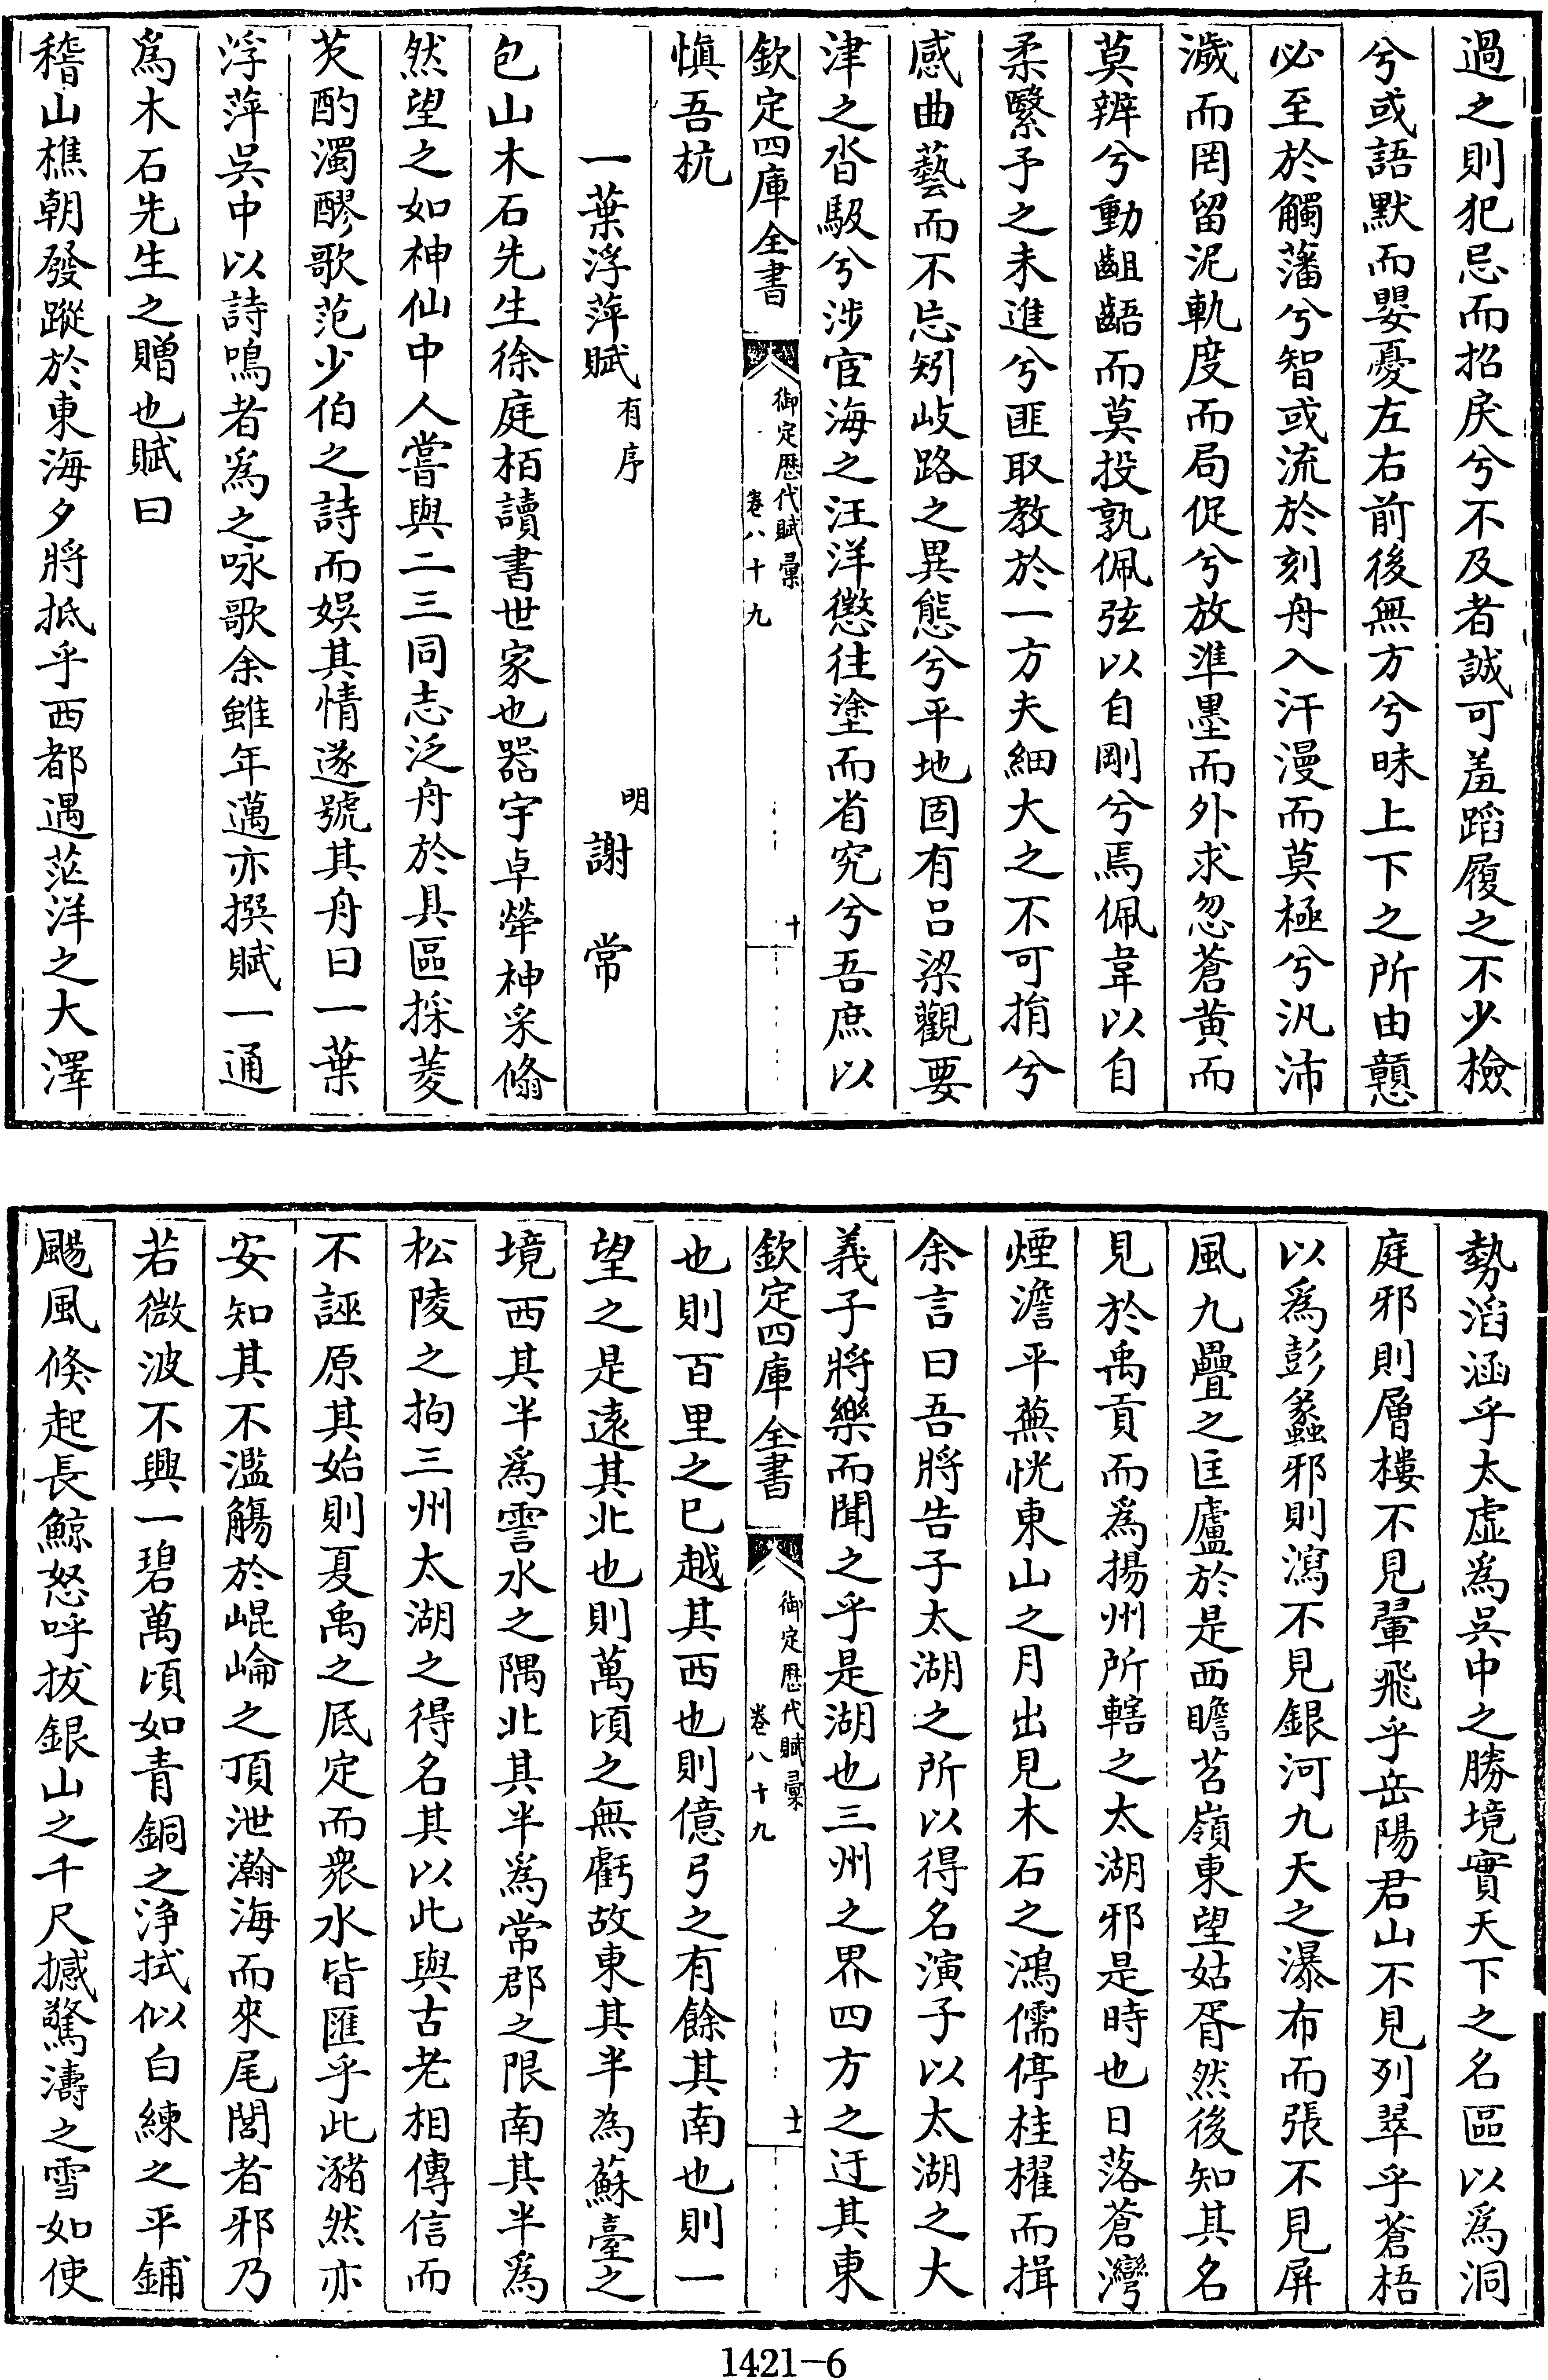 過之則犯忌而招戾兮不及者誠可羞蹈履之不少檢
兮或語默而嬰憂左右前後無方兮昧上下之所由戇
必至於觸藩兮智或流於刻舟入汗漫而莫極兮汎沛
濊而罔留泥軌度而局促兮放準墨而外求忽蒼黄而
莫辨兮動齟齬而莫投孰佩弦以自剛兮焉佩韋以自
柔繄予之未進兮匪取教於一方夫細大之不可捐兮
感曲藝而不忘矧岐路之異態兮平地固有呂梁觀要
津之沓馺兮涉宦海之汪洋懲往塗而省究兮吾庶以
欽定四庫全書
御定歷代賦彙
卷八十九
十
慎吾杭
一葉浮萍賦有序
明謝常
包山木石先生徐庭栢讀書世家也器宇卓犖神采翛
然望之如神仙中人嘗與二三同志泛舟於具區採菱
芡酌濁醪歌范少伯之詩而娛其情遂號其舟曰一葉
浮萍吳中以詩鳴者爲之咏歌余雖年邁亦撰賦一通
爲木石先生之贈也賦曰
稽山樵朝發蹤於東海夕將抵乎西都遇茫洋之大澤
勢滔涵乎太虛爲吳中之勝境實天下之名區以爲洞
庭邪則層樓不見翬飛乎岳陽君山不見列翠乎蒼梧
以爲彭蠡邪則瀉不見銀河九天之瀑布而張不見屏
風九疊之匡廬於是西瞻苕嶺東望姑胥然後知其名
見於禹貢而爲揚州所轄之太湖邪是時也日落蒼灣
煙澹平蕪恍東山之月出見木石之鴻儒停桂櫂而揖
余言曰吾將告子太湖之所以得名演子以太湖之大
義子將樂而聞之乎是湖也三州之界四方之迂其東
欽定四庫全書
御定歷代賦彙
卷八十九
十一
也則百里之已越其西也則億弓之有餘其南也則一
望之是遠其北也則萬頃之無虧故東其半為蘇臺之
境西其半爲霅水之隅北其半爲常郡之限南其半爲
松陵之拘三州太湖之得名其以此與古老相傳信而
不誣原其始則夏禹之厎定而衆水皆匯乎此瀦然亦
安知其不濫觴於崐崘之頂泄瀚海而來尾閭者邪乃
若微波不興一碧萬頃如青銅之浄拭似白練之平鋪
颶風倏起長鯨怒呼拔銀山之千尺撼驚濤之雪如使
1421-6